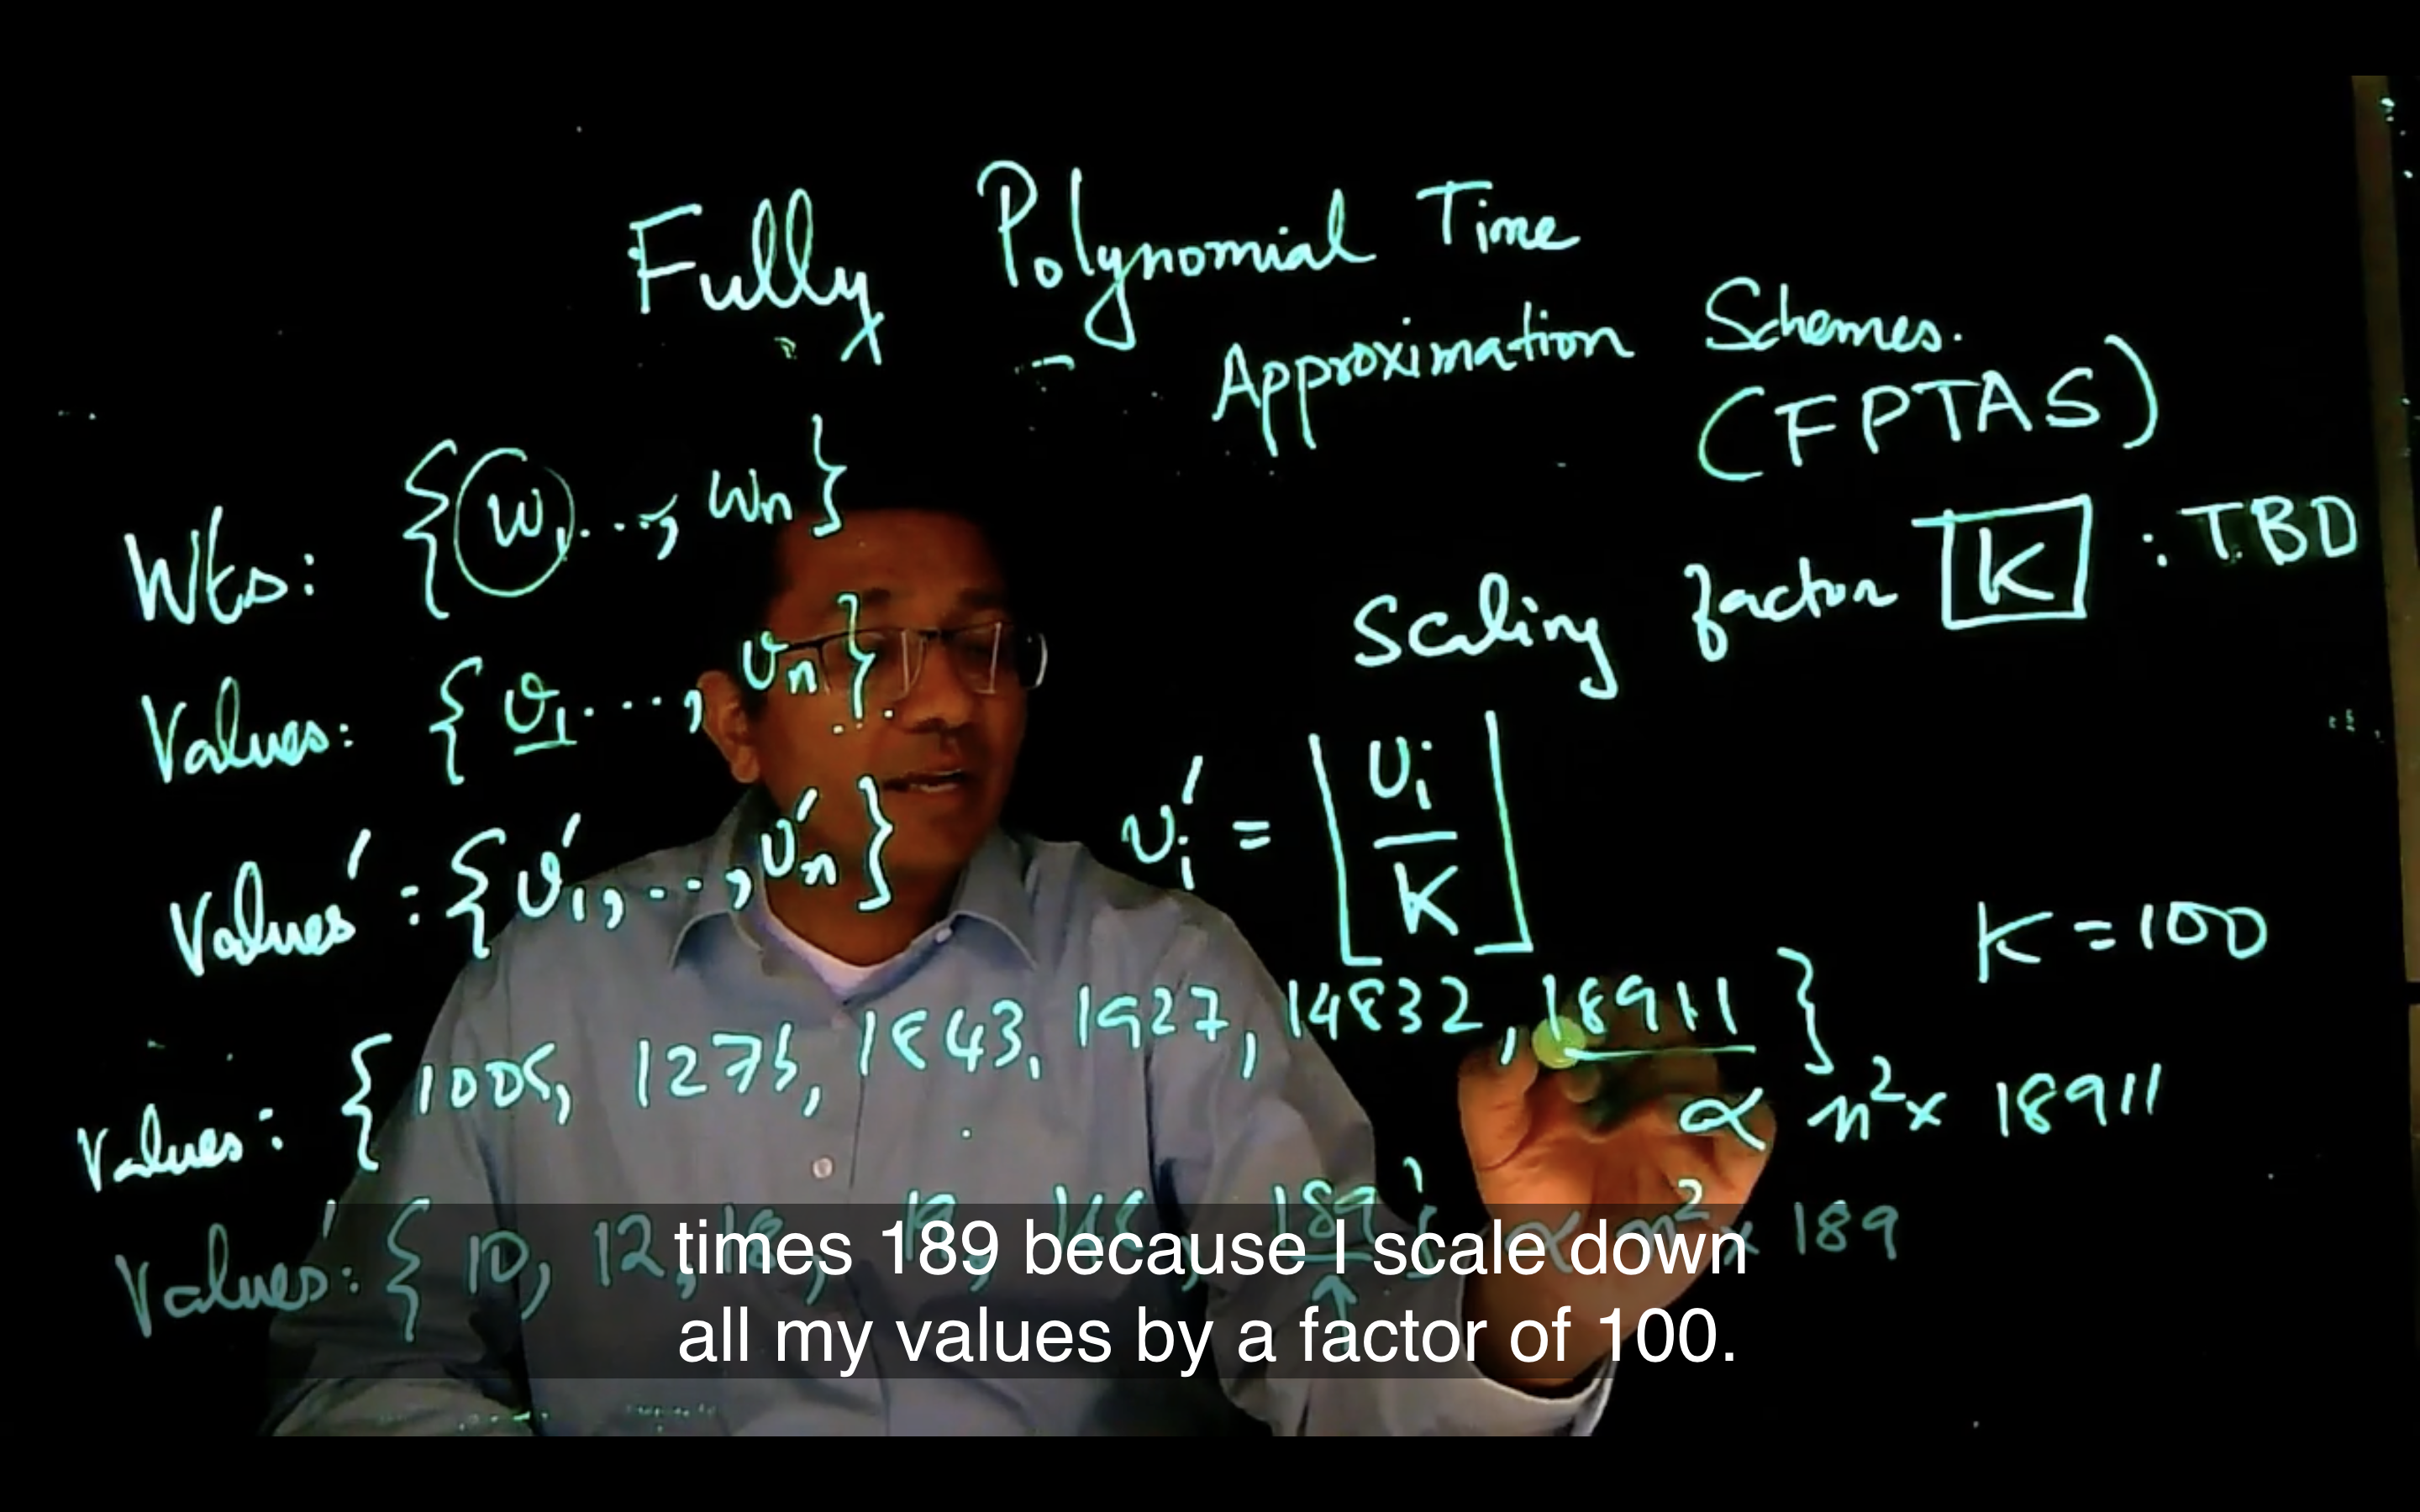 Fully Polynomial Time
Approximation Schemes.
(FPTAS)
Wts: {w1, ..., wn}
Scaling factor K : TBD
Values: {v1 ..., vn}
Values': {v1', ..., vn'}
vi' = ⌊vi/K⌋
K = 100
Values: { 1005, 1275, 1843, 1927, 14832, 18911 }
∝ n² x 18911
Values': { 10, 12, 18, 19, 148, 189 } ∝ n² x 189
times 189 because I scale down
all my values by a factor of 100.